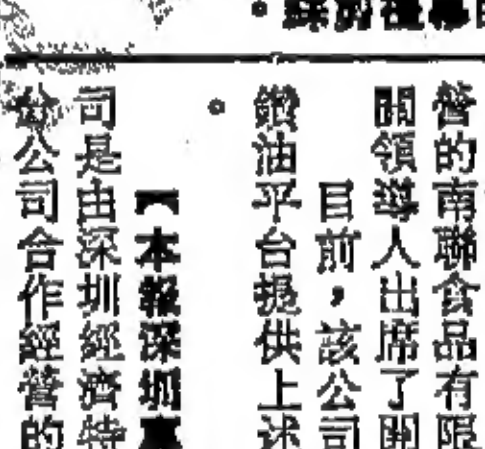 營的南聯食品有限
開領導人出席了開
目前，該公司
鑽油平台提供上述
。
【本報深圳專
司是由深圳經濟特
分公司合作經營的